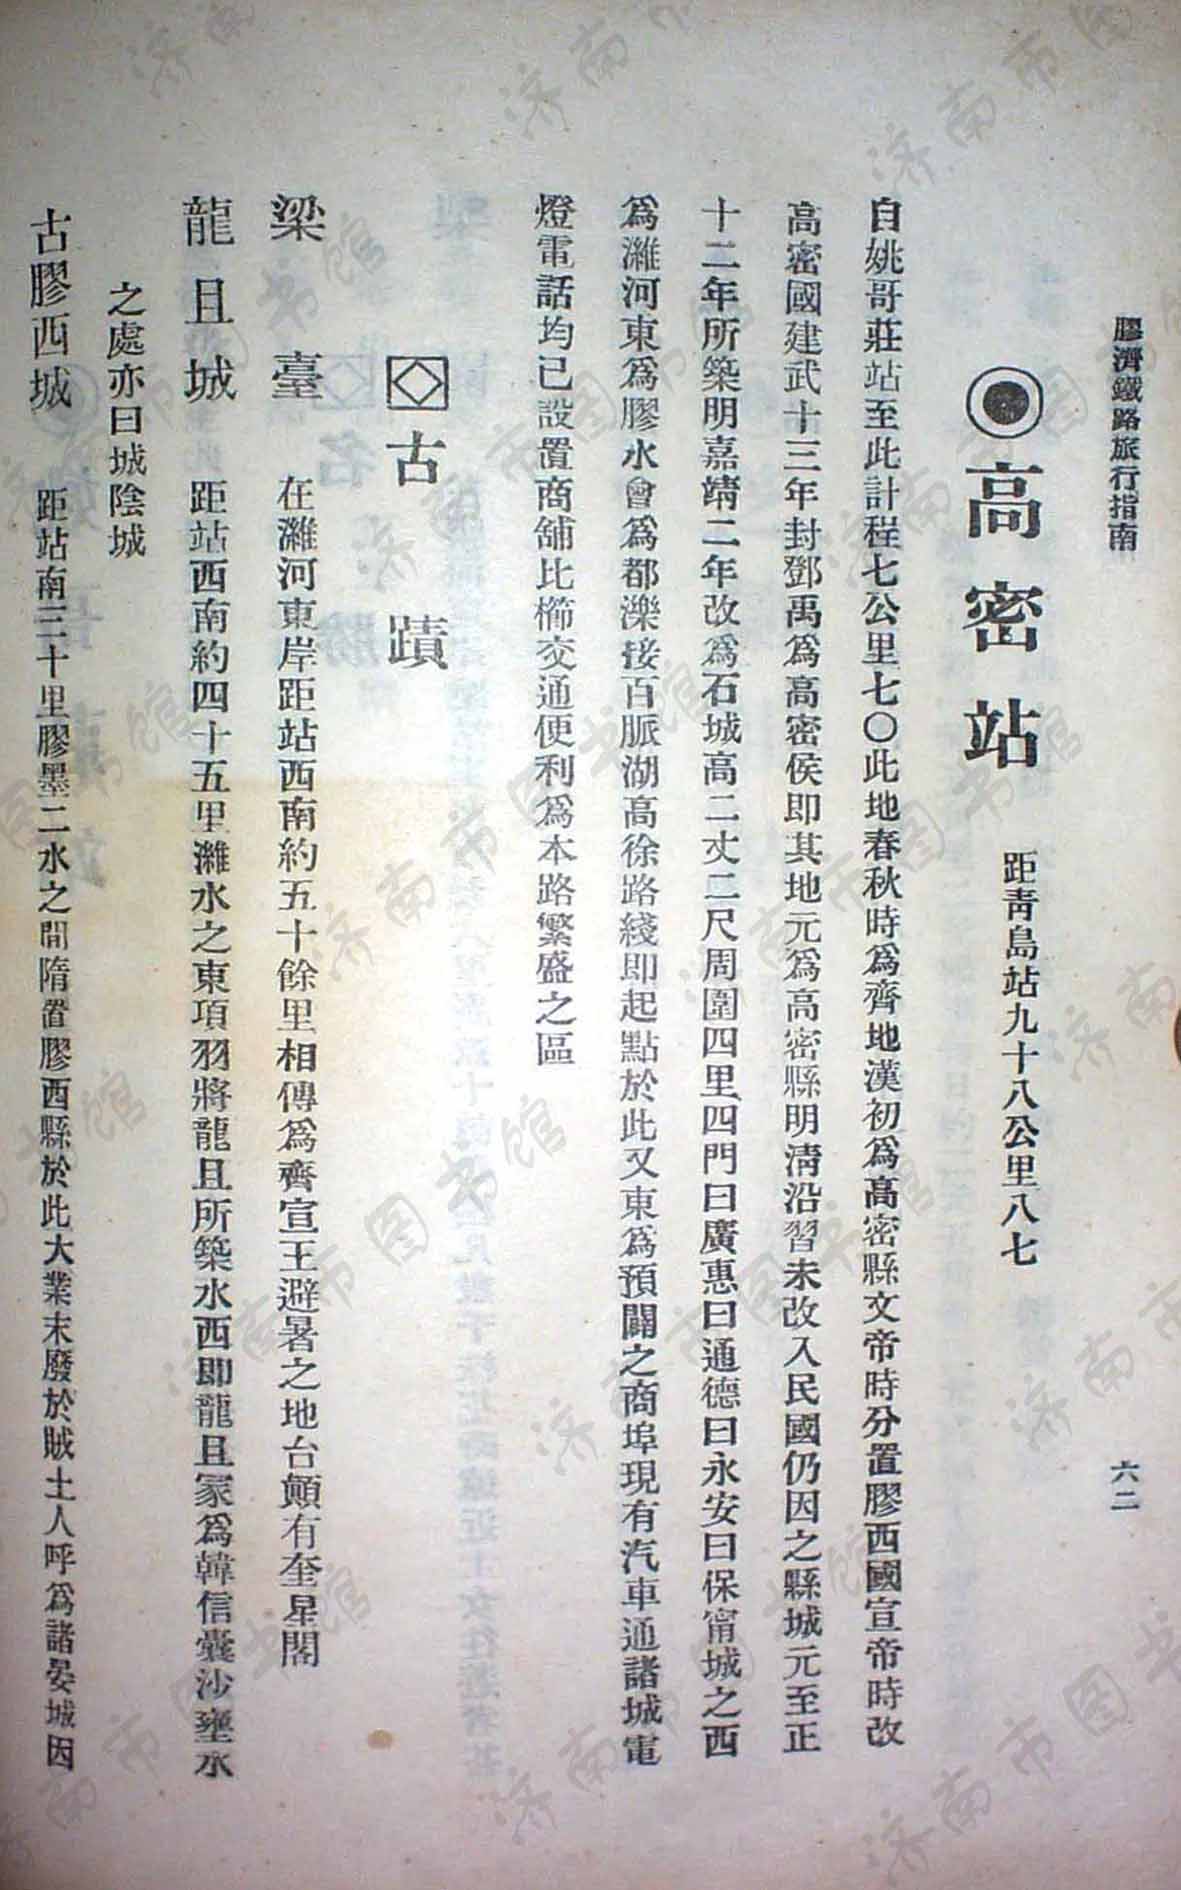 膠濟鐵路旅行指南
六二
高密站 距靑島站九十八公里八七
自姚哥莊站至此計程七公里七〇此地春秋時爲齊地漢初爲高密縣文帝時分置膠西國宣帝時改
高密國建武十三年封鄧禹爲高密侯即其地元爲高密縣明淸沿習未改入民國仍因之縣城元至正
十二年所築明嘉靖二年改爲石城高二丈二尺周圍四里四門曰廣惠曰通德曰永安曰保甯城之西
爲濰河東爲膠水會爲都濼接百脈湖高徐路綫即起點於此又東爲預闢之商埠現有汽車通諸城電
燈電話均已設置商舖比櫛交通便利爲本路繁盛之區
古蹟
梁臺 在濰河東岸距站西南約五十餘里相傳爲齊宣王避暑之地台顚有奎星閣
龍且城 距站西南約四十五里濰水之東項羽將龍且所築水西即龍且冢爲韓信囊沙壅水
之處亦曰城陰城
古膠西城 距站南三十里膠墨二水之間隋置膠西縣於此大業末廢於賊土人呼爲諸晏城因
济南市图书馆